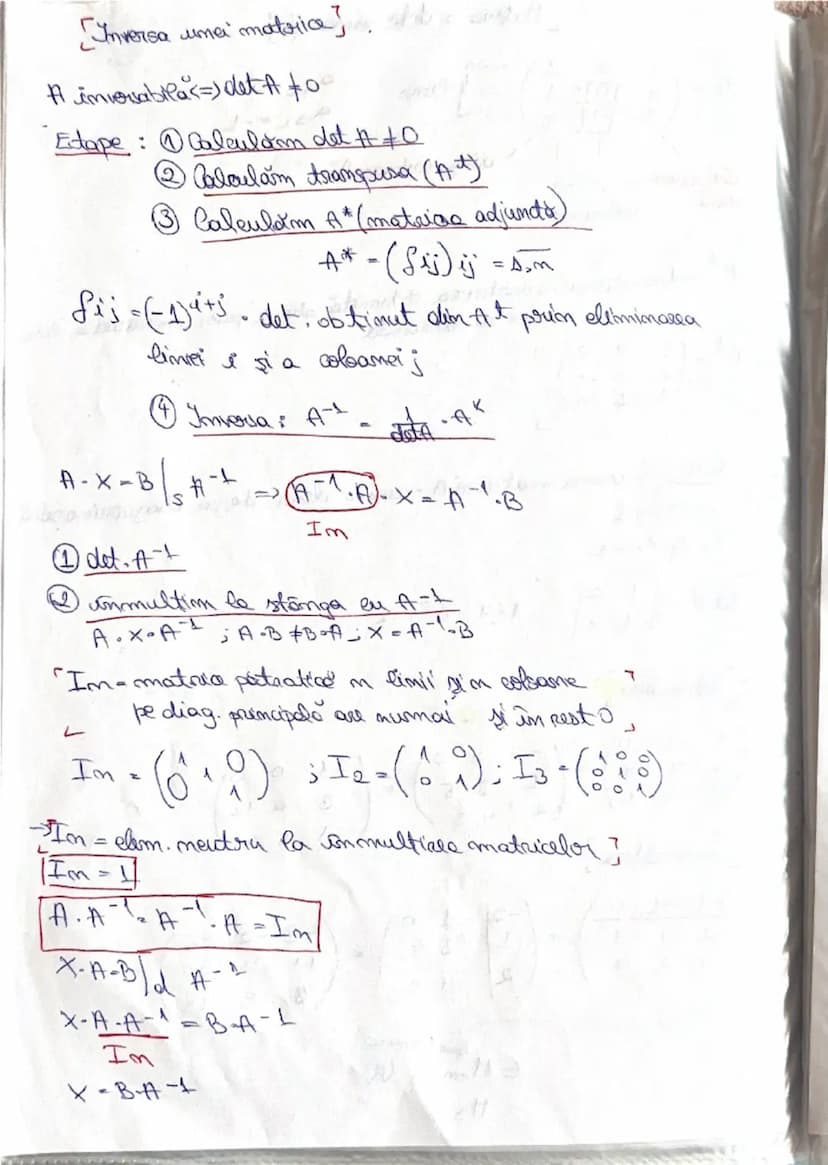 [Inversa unei matrice].
A inversabilă <=> det A ≠ 0
Etape : ① Calculăm det A ≠ 0
② Calculăm transpusa (A^t)
③ Calculăm A* (matricea adjunctă)
A* = (δij) ij = 1,n
δij = (-1)^i+j . det. obtinut din A^t prin eliminarea
liniei i și a coloanei j
④ Inversa : A^-1 = 1/detA · A*
A · X = B |s A^-1 => A^-1 · A · X = A^-1 · B
In
① det. A^-1
② înmultim la stânga cu A^-1
A · X · A^-1 ; A·B ≠ B·A ; X = A^-1 · B
[In = matrice pătratică n linii și n coloane
pe diag. principală are numai și în rest 0]
In = (1 0 1 0 1) ; I2 = (1 0 0 1) ; I3 = (1 0 0 0 1 0 0 0 1)
→[In = elem. neutru la înmultirea matricelor]
In = 1
A · A^-1 = A^-1 · A = In
X · A = B |d A^-1
X · A · A^-1 = B · A^-1
In
X = B·A^-1